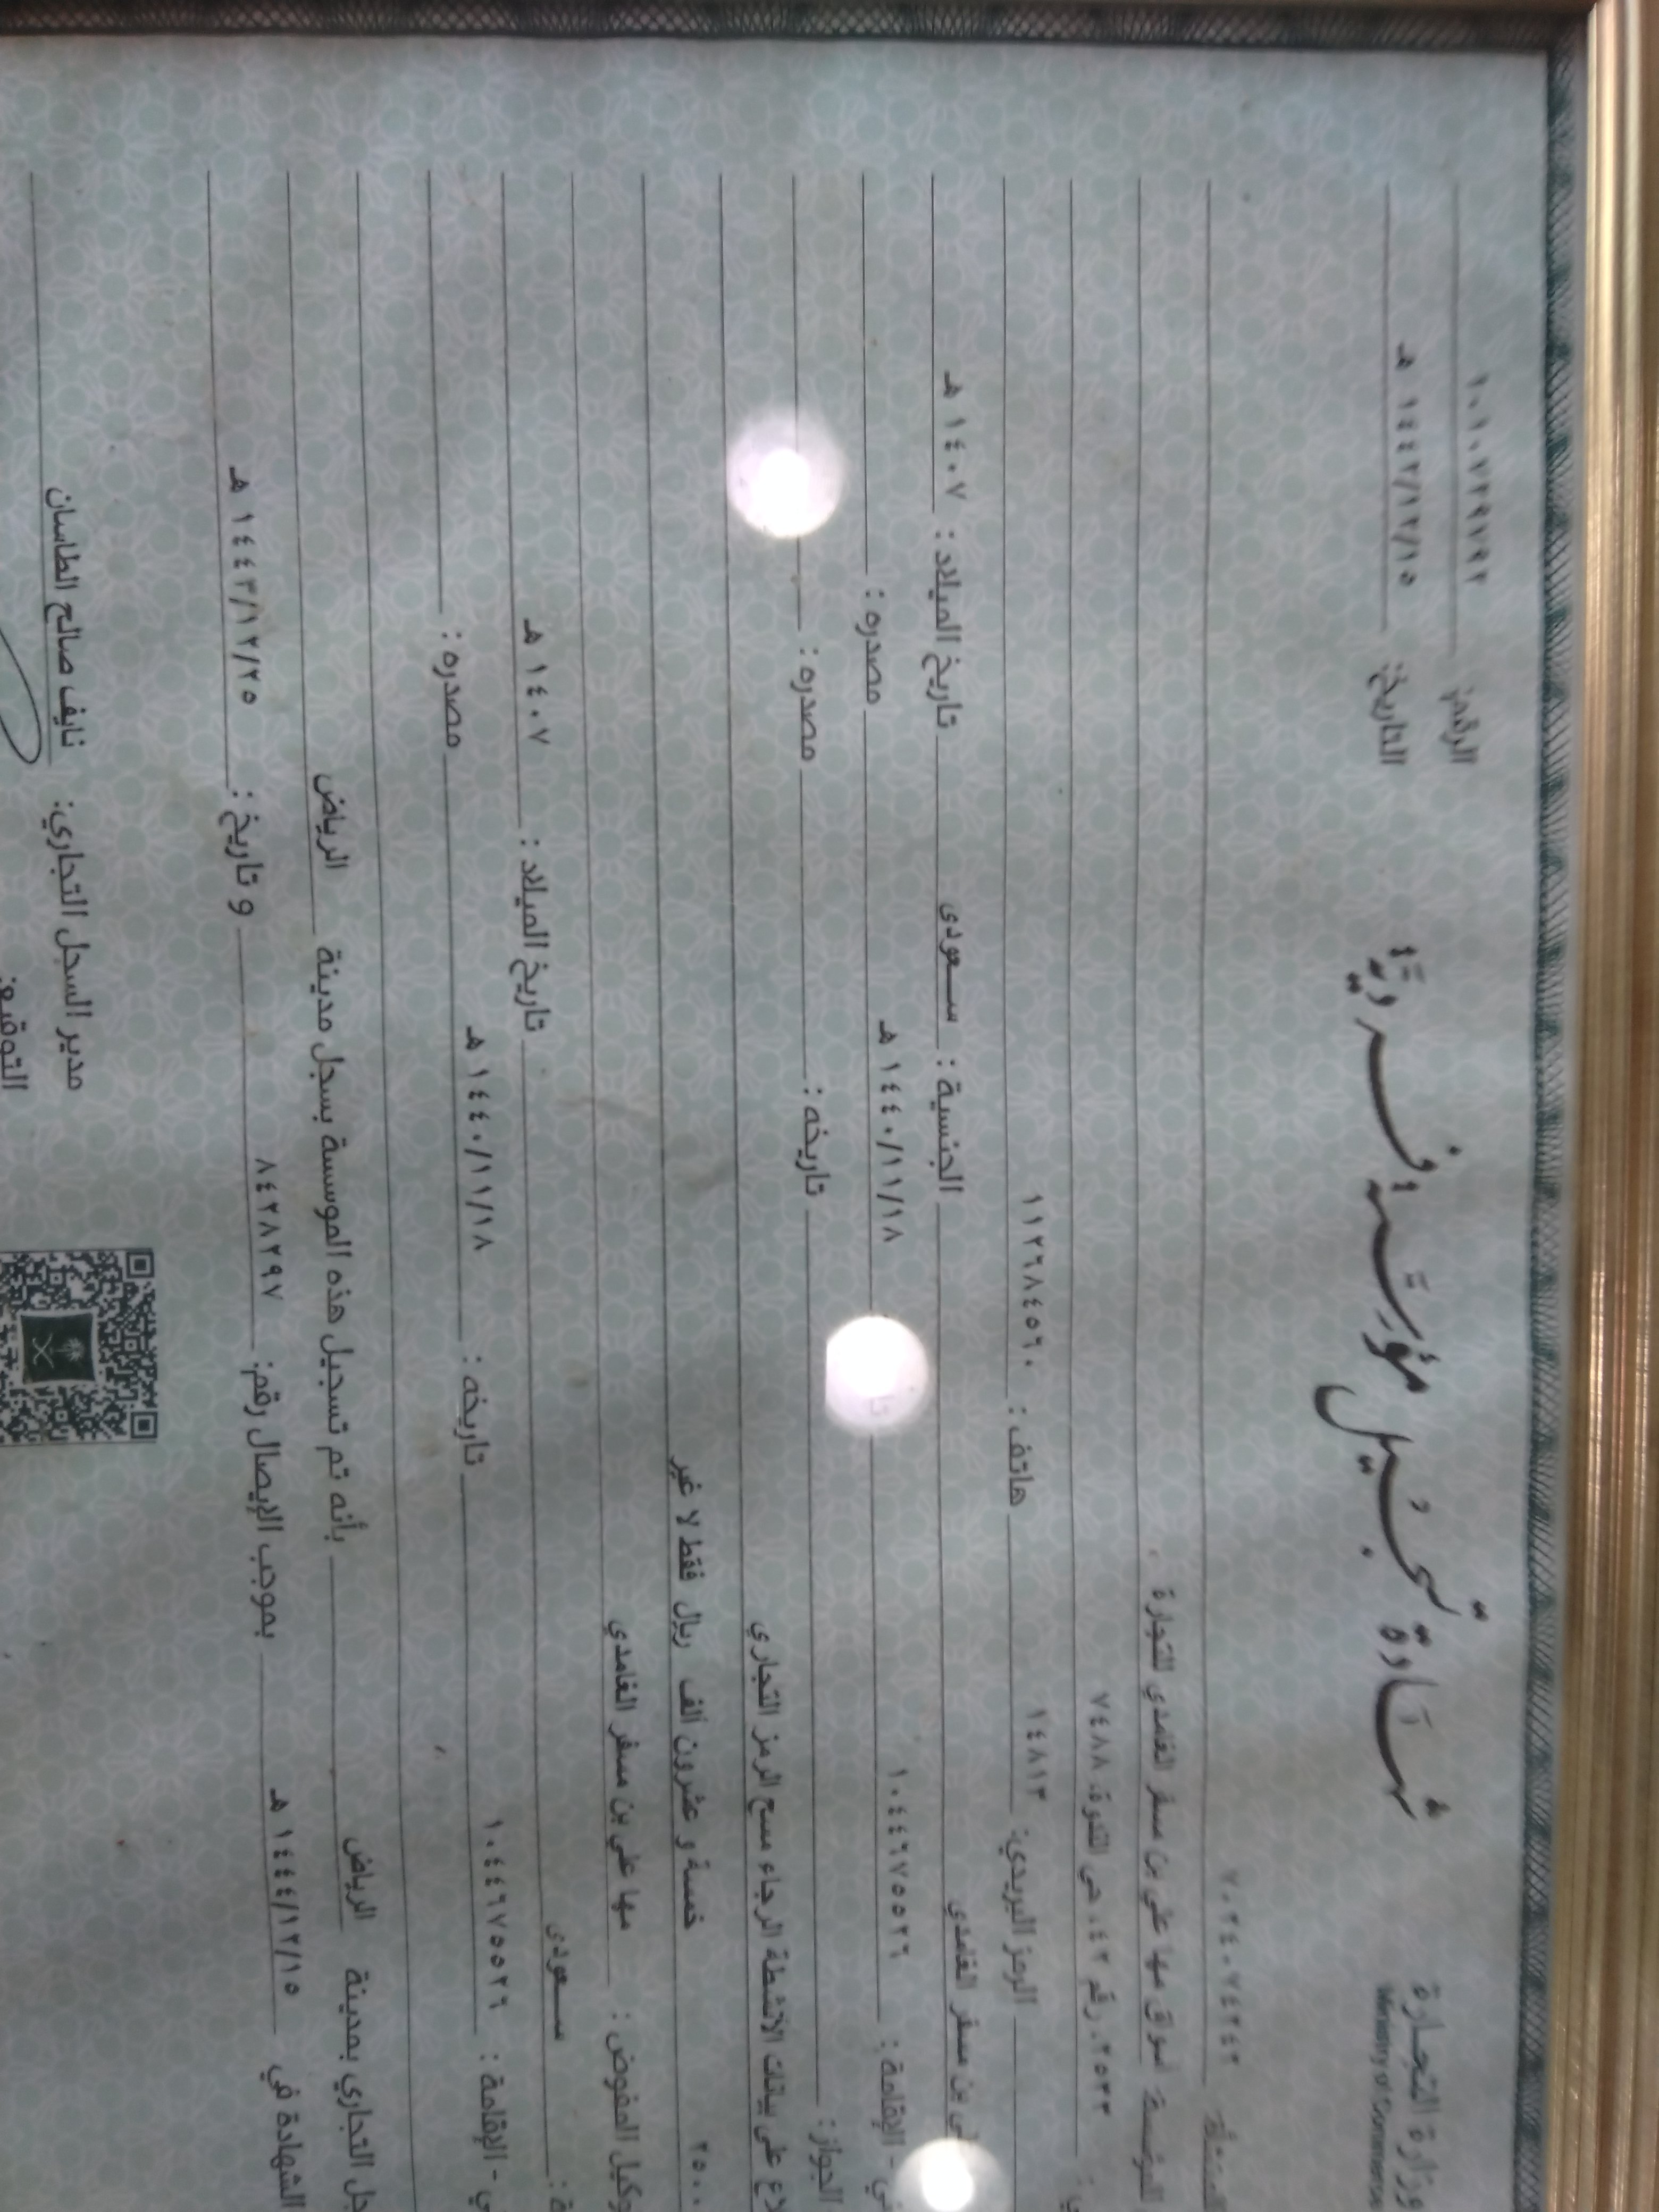 وزارة التجارة
Ministry of Commerce
شهادة تسجيل مؤسسة فردية
الرقم: ١٠١٠٧٢٩١٩٢
التاريخ: ١٤٤٢/١٢/١٥ هـ
٧٠٢٤٠٧٤٢٤٢
المؤسسة: اسواق مها علي بن مسفر الغامدي للتجارة
٢٥٣٣، رقم ٤٢، حي الندوة، ٧٤٨٨
الرمز البريدي: ١٤٨١٣ هاتف: ١١٢٦٨٤٥٦٠
بن مسفر الغامدي الجنسية: سعودى تاريخ الميلاد: ١٤٠٧ هـ
- الإقامة: ١٠٤٤٦٧٥٥٢٦ ١٤٤٠/١١/١٨ هـ مصدره:
الجواز: تاريخه: مصدره:
على بيانات الأنشطة الرجاء مسح الرمز التجاري
٢٥٠٠٠ خمسة و عشرون ألف ريال فقط لا غير
المفوض: مها علي بن مسفر الغامدي
سعودى تاريخ الميلاد: ١٤٠٧ هـ
- الإقامة: ١٠٤٤٦٧٥٥٢٦ تاريخه: ١٤٤٠/١١/١٨ هـ مصدره:
التجاري بمدينة الرياض بأنه تم تسجيل هذه الموسسة بسجل مدينة الرياض
الشهادة في ١٤٤٤/١٢/١٥ هـ بموجب الإيصال رقم: ٨٤٢٨٢٩٧ و تاريخ: ١٤٤٣/١٢/٢٥ هـ
مدير السجل التجاري: نايف صالح الطاسان
التوقيع: